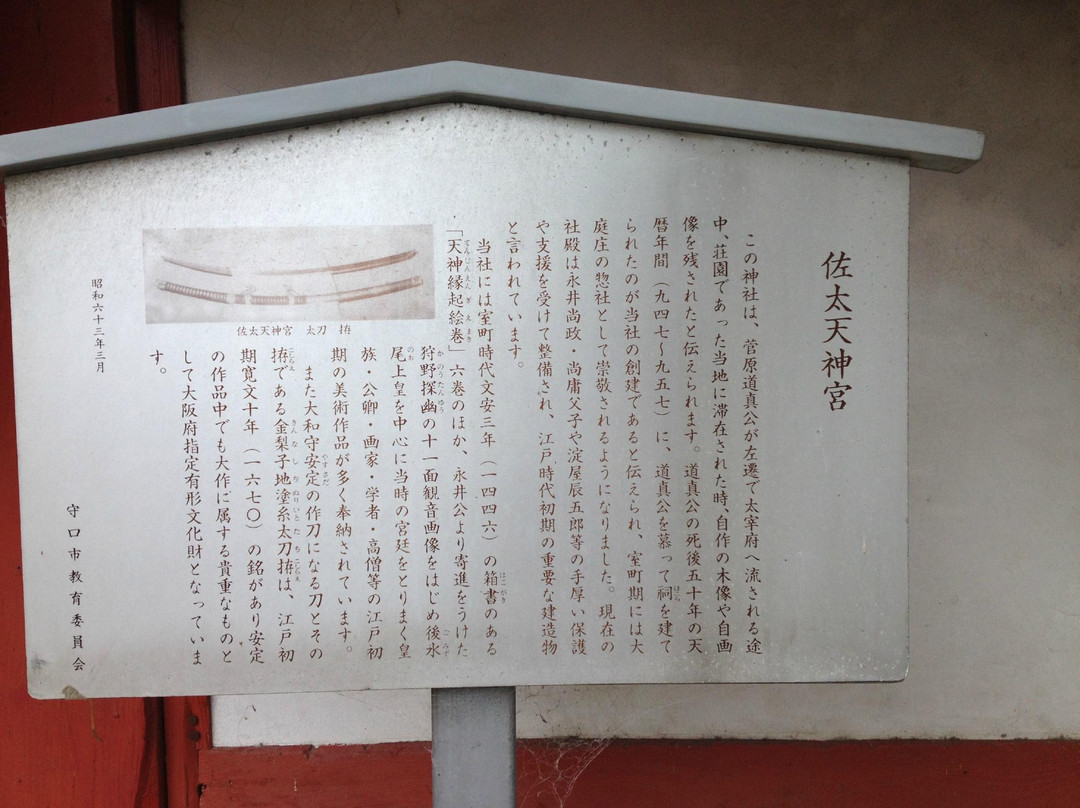 佐太天神宮
この神社は、菅原道真公が左遷で太宰府へ流される途
中、荘園であった当地に滞在された時、自作の木像や自画
像を残されたと伝えられます。道真公の死後五十年の天
暦年間（九四七～九五七）に、道真公を慕って祠を建て
られたのが当社の創建であると伝えられ、室町期には大
庭庄の惣社として崇敬されるようになりました。現在の
社殿は永井尚政・尚庸父子や淀屋辰五郎等の手厚い保護
や支援を受けて整備され、江戸時代初期の重要な建造物
と言われています。
当社には室町時代文安三年（一四四六）の箱書のある
「天神縁起絵巻」六巻のほか、永井公より寄進をうけた
狩野探幽の十一面観音画像をはじめ後水
尾上皇を中心に当時の宮廷をとりまく皇
族・公卿・画家・学者・高僧等の江戸初
期の美術作品が多く奉納されています。
また大和守安定の作刀になる刀とその
拵である金梨子地塗糸太刀拵は、江戸初
期寛文十年（一六七〇）の銘があり安定
の作品中でも大作に属する貴重なものと
して大阪府指定有形文化財となっていま
す。
佐太天神宮　太刀　拵
昭和六十三年三月
守口市教育委員会